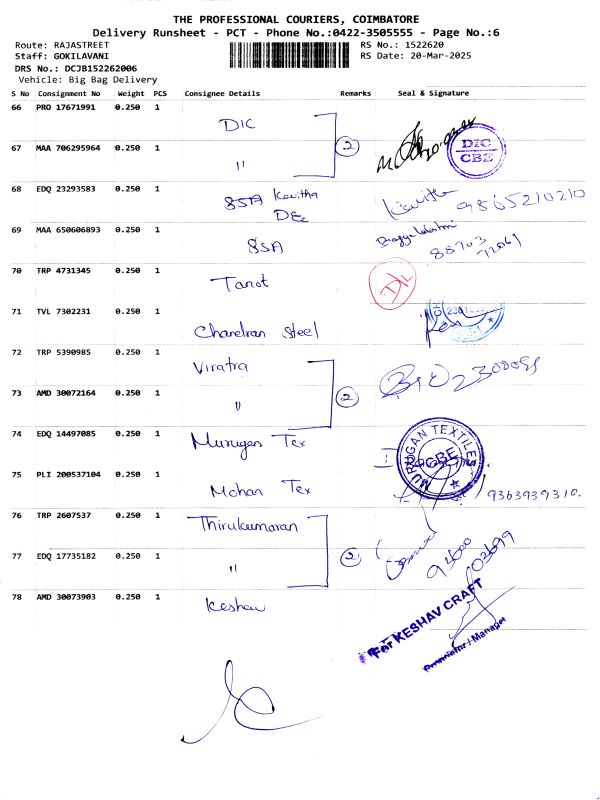 THE PROFESSIONAL COURIERS, COIMBATORE
Delivery Runsheet - PCT - Phone No.:0422-3505555 - Page No.:6
Route: RAJASTREET RS No.: 1522620
Staff: GOKILAVANI RS Date: 20-Mar-2025
DRS No.: DCJB152262006
Vehicle: Big Bag Delivery
S No Consignment No Weight PCS Consignee Details Remarks Seal & Signature
66 PRO 17671991 0.250 1 DIC
67 MAA 706295964 0.250 1 " 2 DIC CBE
68 EDQ 23293583 0.250 1 SSA Kavitha Kavitha 9865210210
DEe
69 MAA 650606893 0.250 1 SSA 88703
72061
70 TRP 4731345 0.250 1 Tanot
71 TVL 7302231 0.250 1 Chandran Steel
72 TRP 5390985 0.250 1 Viratra
73 AMD 30072164 0.250 1 " 2
74 EDQ 14497085 0.250 1 Murugan Tex MURUGAN TEXTILES CBE
75 PLI 200537104 0.250 1 Mohan Tex 9363939310.
76 TRP 2607537 0.250 1 Thirukumaran
77 EDQ 17735182 0.250 1 " 2 92600 02699
78 AMD 30073903 0.250 1 Keshav For KESHAV CRAFT
Proprietor / Manager